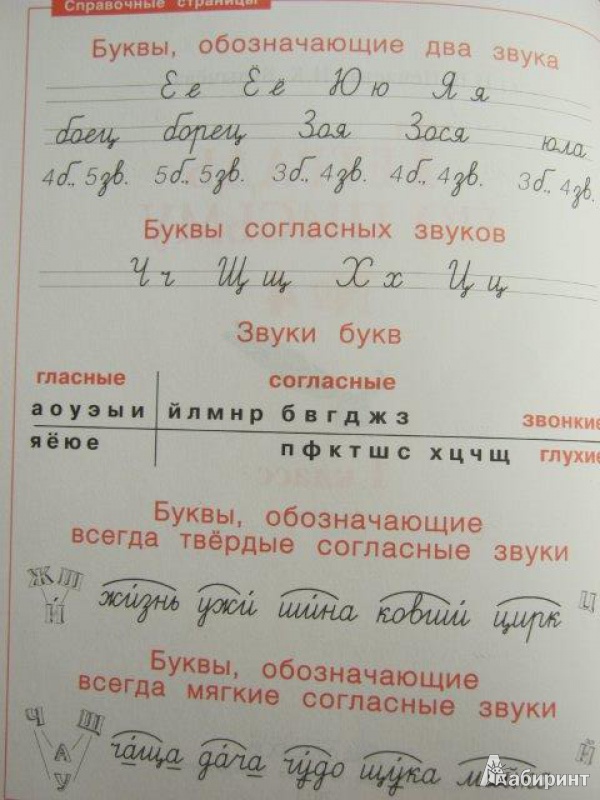 Справочные страницы
Буквы, обозначающие два звука
Е е Ё ё Ю ю Я я
боец борец Зоя Зося юла
4б., 5зв. 5б., 5зв. 3б., 4зв. 4б., 4зв. 3б., 4зв.
Буквы согласных звуков
Ч ч Щ щ Х х Ц ц
Звуки букв
гласные согласные
а о у э ы и й л м н р б в г д ж з звонкие
я ё ю е п ф к т ш с х ц ч щ глухие
Буквы, обозначающие
всегда твёрдые согласные звуки
Ж Ш
И́ жи́знь ужи́ ши́на ковши́ цирк Ц
Буквы, обозначающие
всегда мягкие согласные звуки
Ч Щ Й
А ча́ща да́ча чу́до щу́ка
У
Лабиринт